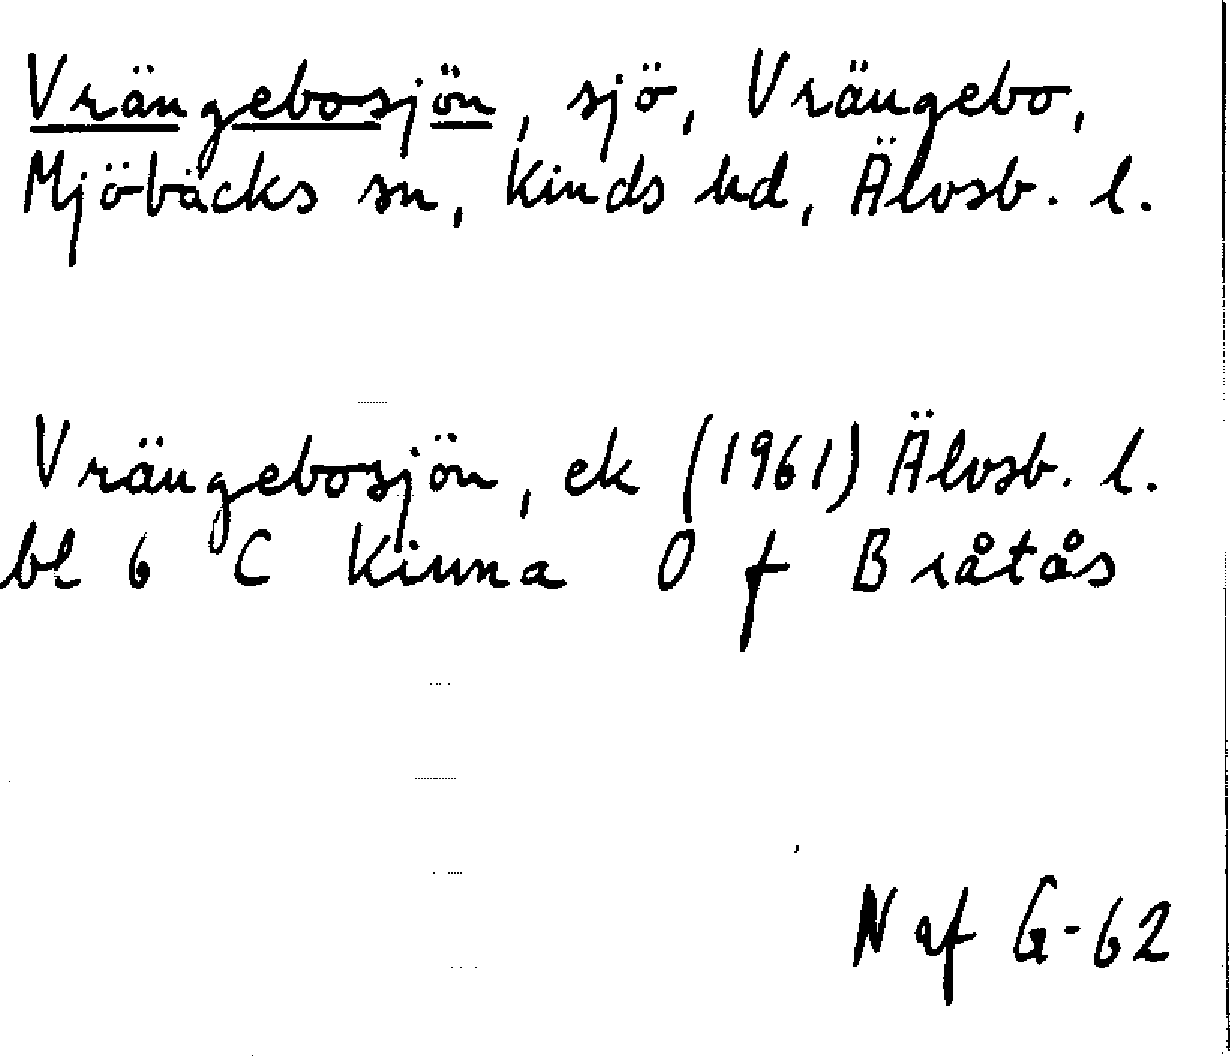 Vrängebosjön, sjö, Vrängebo,
Mjöbäcks sn, Kinds hd, Älvsb. l.
Vrängebosjön, ek (1961) Älvsb. l.
bl 6 C Kinna O f Bråtås
N af G-62